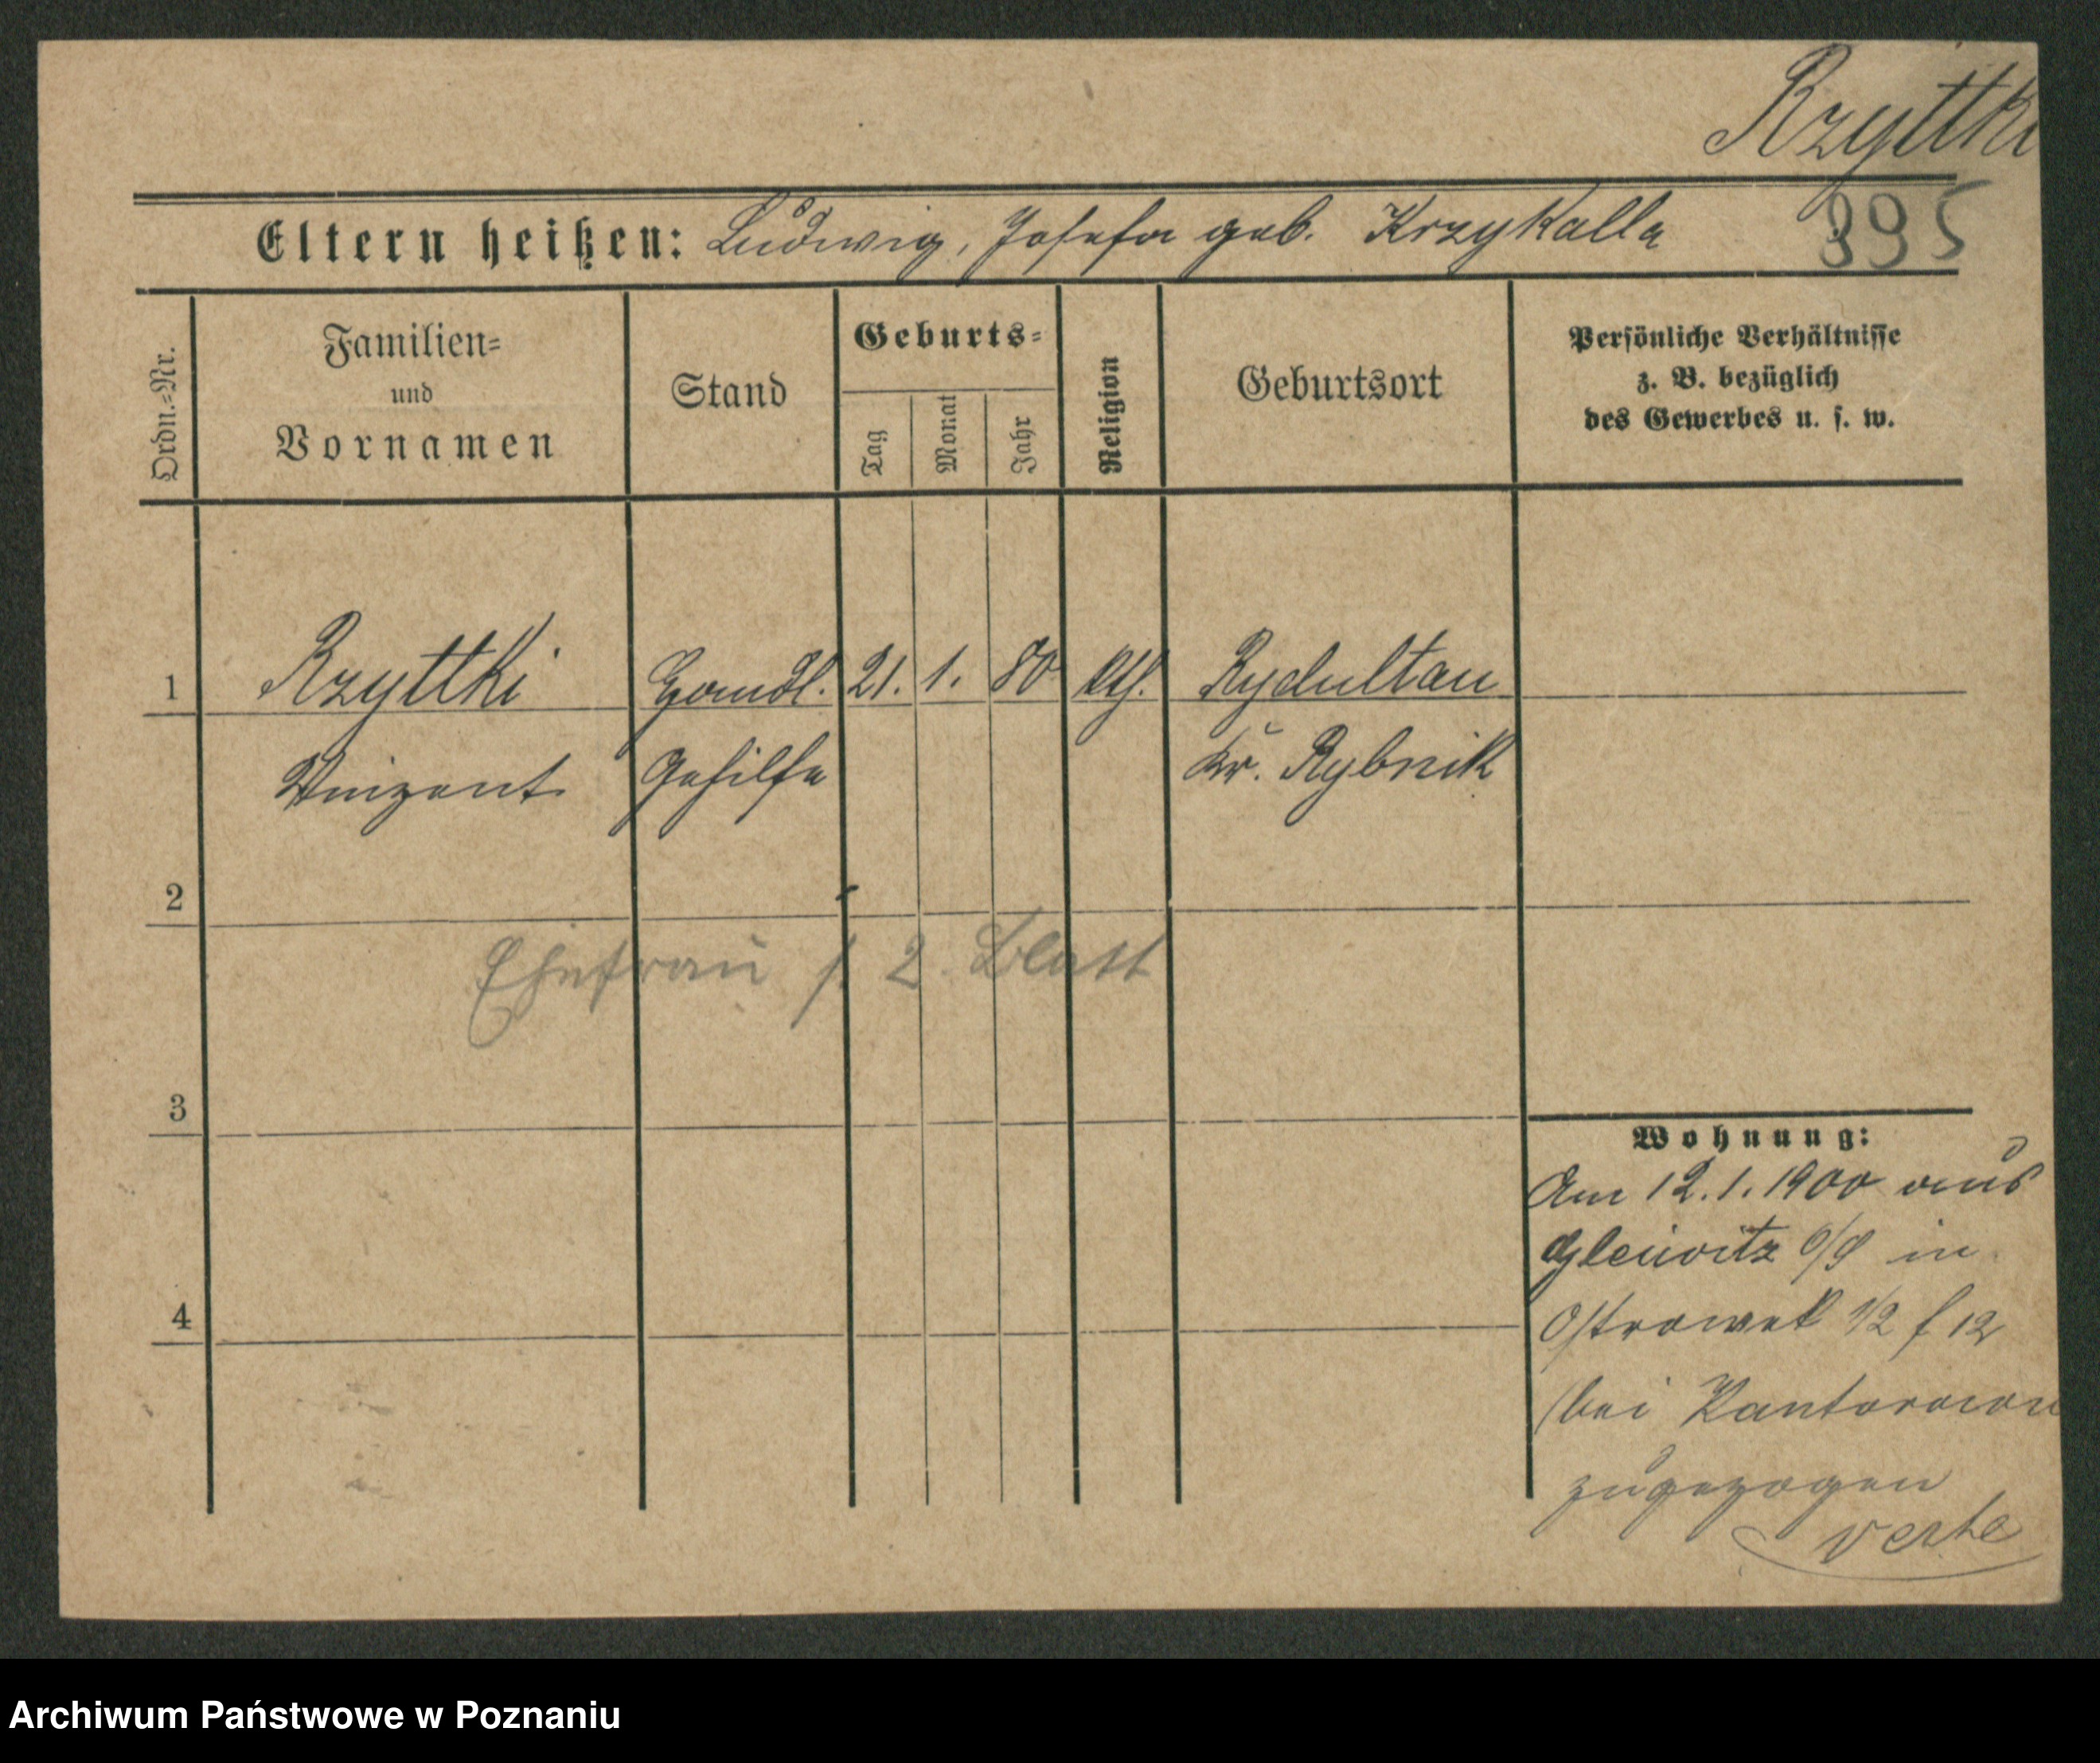 Rzyttki
Eltern heißen: Ludwig, Josefa geb. Krzykalla
395
Ordn.-Nr.
Familien-
und
Vornamen
Stand
Geburts-
Tag
Monat
Jahr
Religion
Geburtsort
Persönliche Verhältnisse
z. B. bezüglich
des Gewerbes u. s. w.
1 Rzyttki Handl. 21. 1. 80 kth. Rydultau
Vinzent Gehilfe Kr. Rybnik
2
Ehefrau s. 2. Blatt
3
4
Wohnung:
Am 12.1.1900 aus
Gleiwitz O/S in
Ostrowek 1/2 f 12
(bei Kantorowi
zugezogen
verte
Archiwum Państwowe w Poznaniu